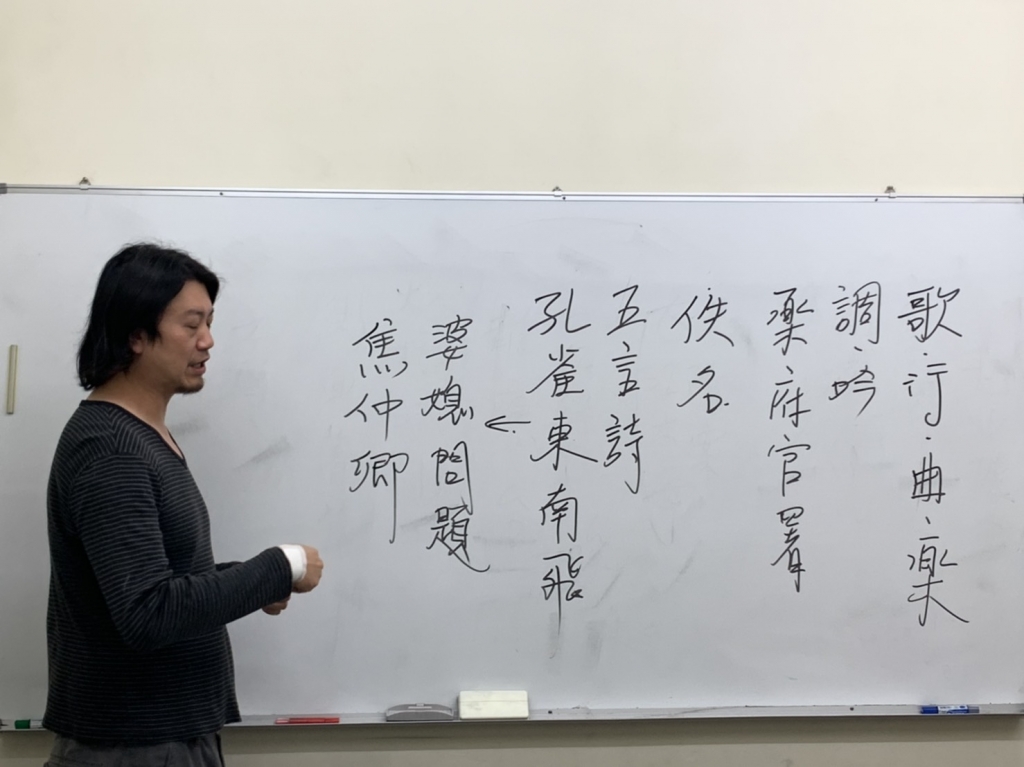 歌、行、曲、樂
調、吟
樂府官署
佚名
五言詩
孔雀東南飛
←
婆媳問題
焦仲卿